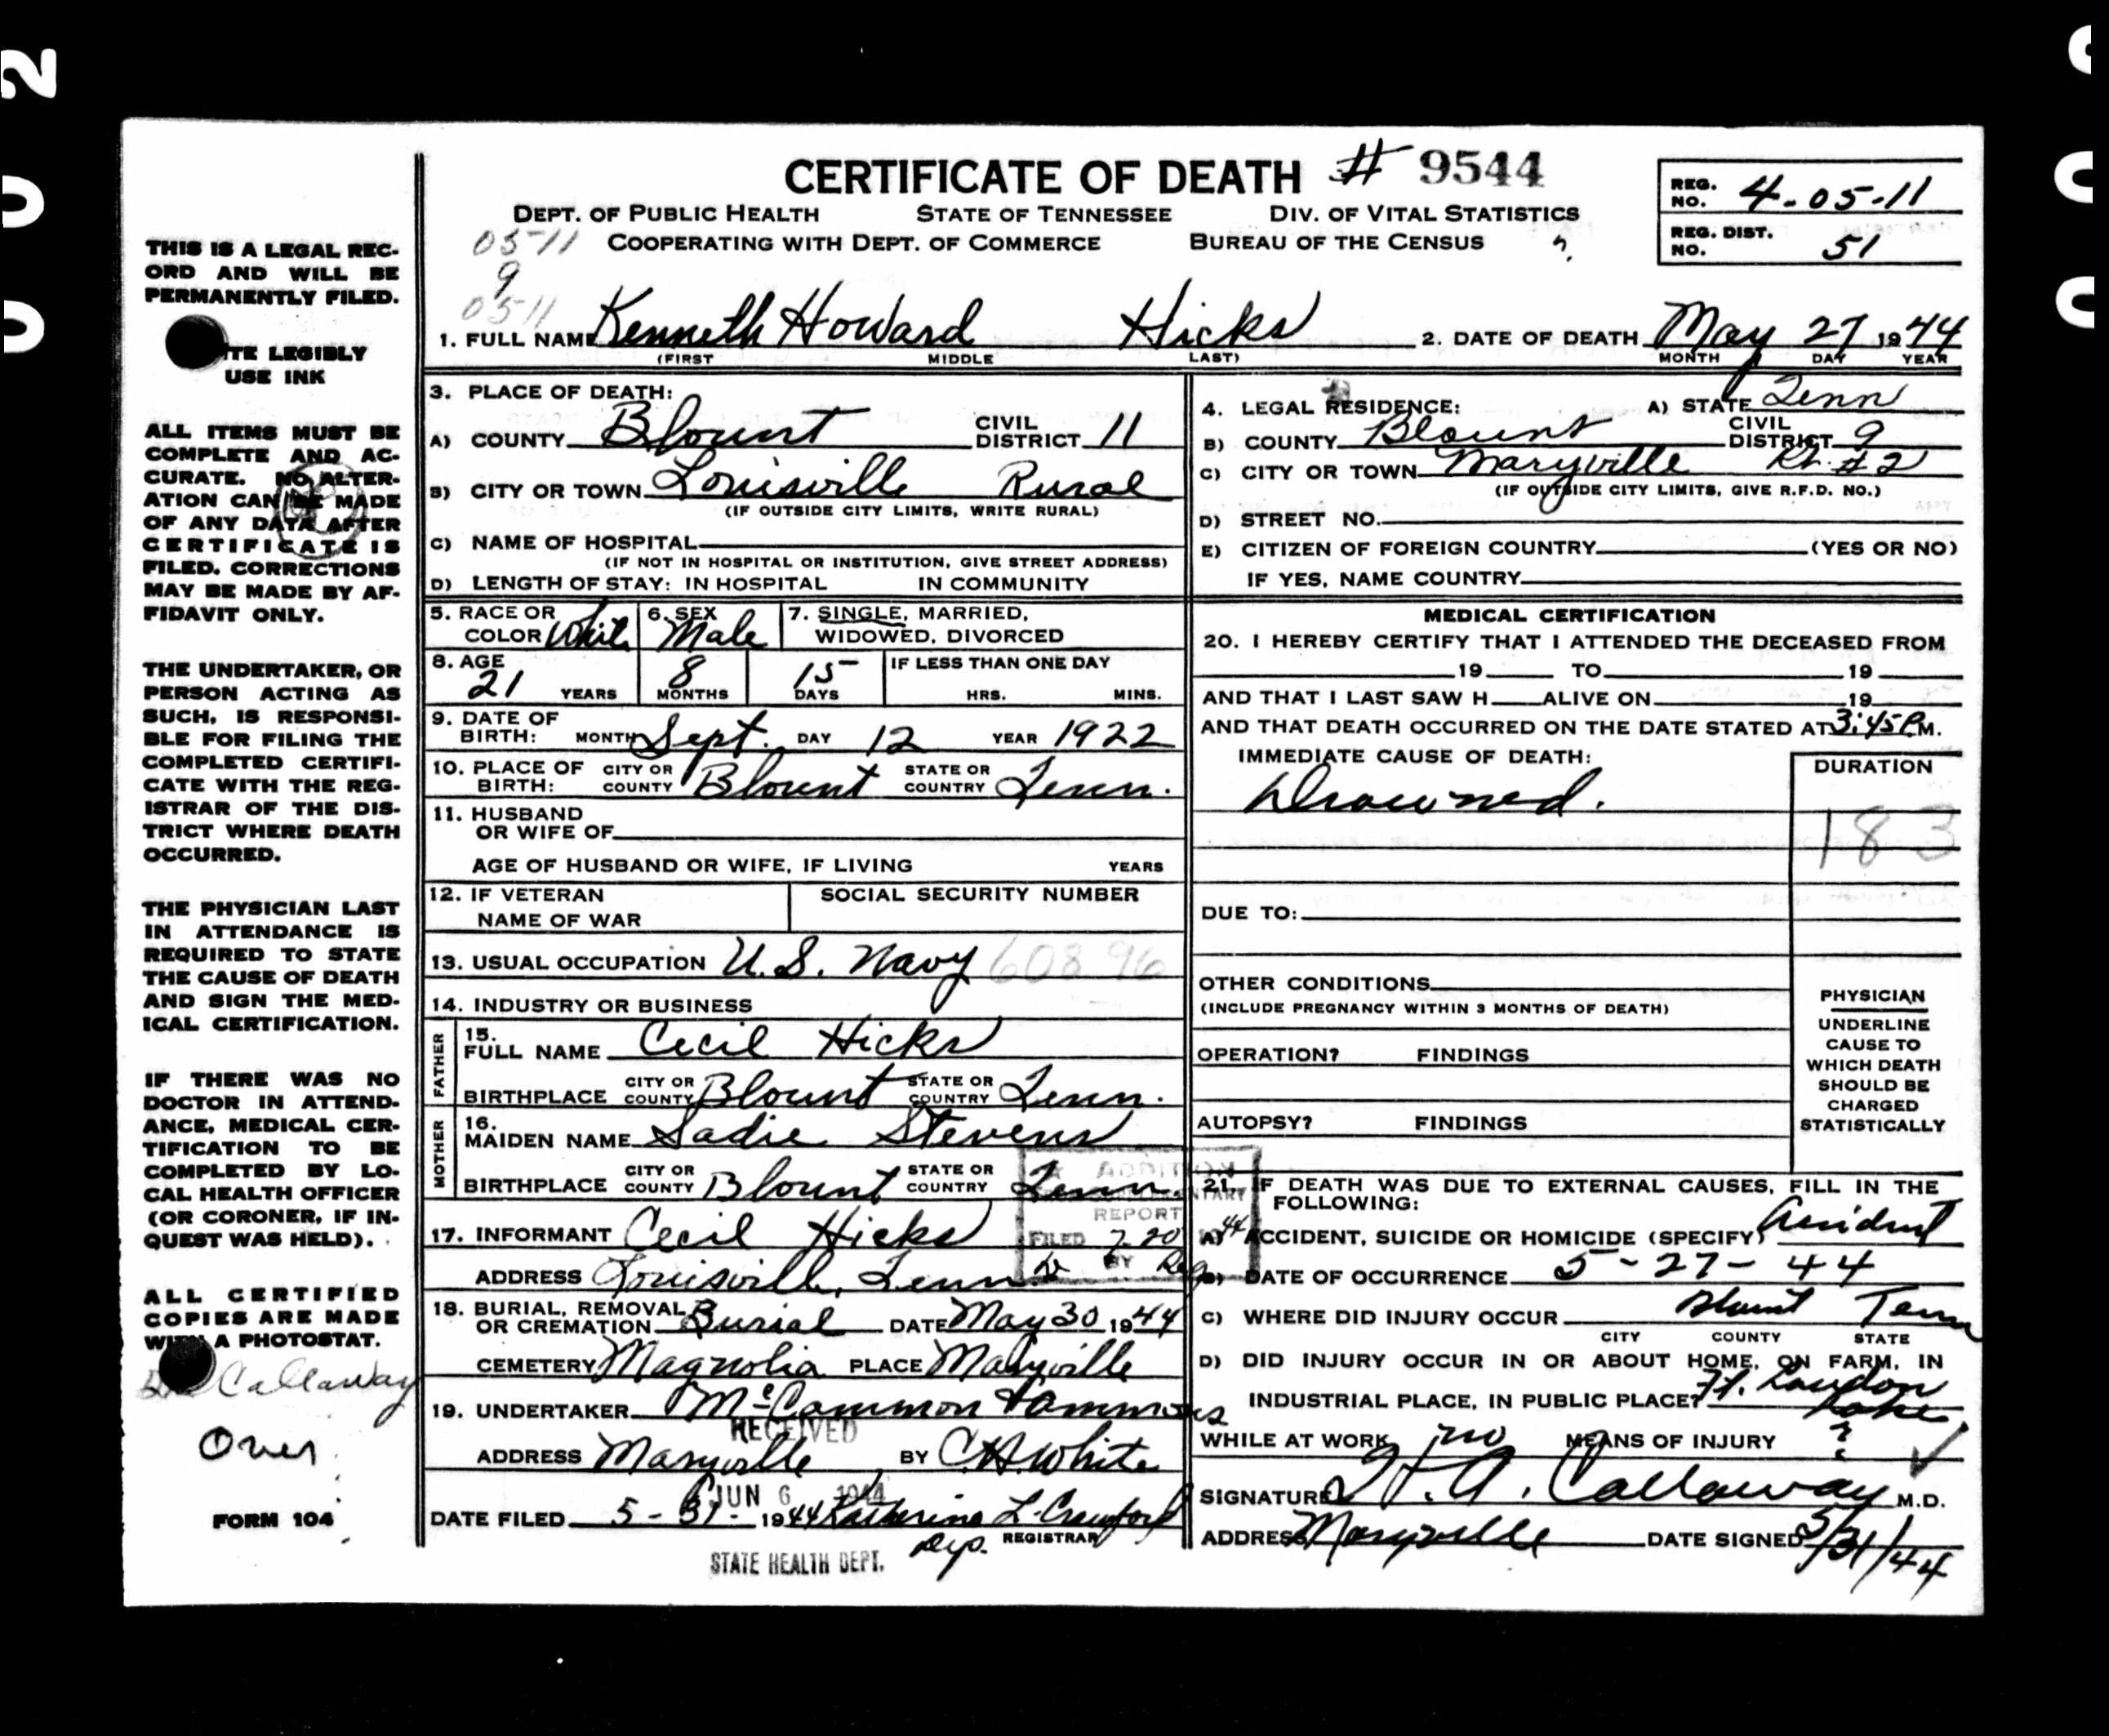 CERTIFICATE OF DEATH # 9544
DEPT. OF PUBLIC HEALTH STATE OF TENNESSEE DIV. OF VITAL STATISTICS
COOPERATING WITH DEPT. OF COMMERCE BUREAU OF THE CENSUS
REG. NO. 4-05-11
REG. DIST. NO. 51
05-11
9
0511
THIS IS A LEGAL REC-
ORD AND WILL BE
PERMANENTLY FILED.
LEGIBLY
USE INK
ALL ITEMS MUST BE
COMPLETE AND AC-
CURATE. NO ALTER-
ATION CAN BE MADE
OF ANY DATA AFTER
CERTIFICATE IS
FILED. CORRECTIONS
MAY BE MADE BY AF-
FIDAVIT ONLY.
THE UNDERTAKER, OR
PERSON ACTING AS
SUCH, IS RESPONSI-
BLE FOR FILING THE
COMPLETED CERTIFI-
CATE WITH THE REG-
ISTRAR OF THE DIS-
TRICT WHERE DEATH
OCCURRED.
THE PHYSICIAN LAST
IN ATTENDANCE IS
REQUIRED TO STATE
THE CAUSE OF DEATH
AND SIGN THE MED-
ICAL CERTIFICATION.
IF THERE WAS NO
DOCTOR IN ATTEND-
ANCE, MEDICAL CER-
TIFICATION TO BE
COMPLETED BY LO-
CAL HEALTH OFFICER
(OR CORONER, IF IN-
QUEST WAS HELD).
ALL CERTIFIED
COPIES ARE MADE
WITH A PHOTOSTAT.
Callaway
Over
FORM 104
1. FULL NAME Kenneth Howard Hicks 2. DATE OF DEATH May 27 1944
(FIRST MIDDLE LAST) MONTH DAY YEAR
3. PLACE OF DEATH:
A) COUNTY Blount CIVIL DISTRICT 11
B) CITY OR TOWN Louisville Rural
(IF OUTSIDE CITY LIMITS, WRITE RURAL)
C) NAME OF HOSPITAL
(IF NOT IN HOSPITAL OR INSTITUTION, GIVE STREET ADDRESS)
D) LENGTH OF STAY: IN HOSPITAL IN COMMUNITY
4. LEGAL RESIDENCE: A) STATE Tenn
B) COUNTY Blount CIVIL DISTRICT 9
C) CITY OR TOWN Maryville Rt. #2
(IF OUTSIDE CITY LIMITS, GIVE R.F.D. NO.)
D) STREET NO.
E) CITIZEN OF FOREIGN COUNTRY (YES OR NO)
IF YES, NAME COUNTRY
5. RACE OR COLOR White 6. SEX Male 7. SINGLE, MARRIED,
WIDOWED, DIVORCED
8. AGE 21 YEARS 8 MONTHS 15 DAYS IF LESS THAN ONE DAY
HRS. MINS.
9. DATE OF BIRTH: MONTH Sept. DAY 12 YEAR 1922
10. PLACE OF BIRTH: CITY OR COUNTY Blount STATE OR COUNTRY Tenn.
11. HUSBAND
OR WIFE OF
AGE OF HUSBAND OR WIFE, IF LIVING YEARS
12. IF VETERAN SOCIAL SECURITY NUMBER
NAME OF WAR
13. USUAL OCCUPATION U.S. Navy 608 96
14. INDUSTRY OR BUSINESS
FATHER
15. FULL NAME Cecil Hicks
BIRTHPLACE CITY OR COUNTY Blount STATE OR COUNTRY Tenn.
MOTHER
16. MAIDEN NAME Sadie Stevens
BIRTHPLACE CITY OR COUNTY Blount STATE OR COUNTRY Tenn.
17. INFORMANT Cecil Hicks
ADDRESS Louisville, Tenn
REPORT
FILED 7-20 44
BY
18. BURIAL, REMOVAL OR CREMATION Burial DATE May 30 1944
CEMETERY Magnolia PLACE Maryville
19. UNDERTAKER McCammon Ammons
RECEIVED
ADDRESS Maryville BY C.H. White
JUN 6 1944
DATE FILED 5-31-1944 Katherine L. Crawford
Dep. REGISTRAR
STATE HEALTH DEPT.
MEDICAL CERTIFICATION
20. I HEREBY CERTIFY THAT I ATTENDED THE DECEASED FROM
19 TO 19
AND THAT I LAST SAW H ALIVE ON 19
AND THAT DEATH OCCURRED ON THE DATE STATED AT 3:45 P.M.
IMMEDIATE CAUSE OF DEATH: DURATION
Drowned.
183
DUE TO:
OTHER CONDITIONS
(INCLUDE PREGNANCY WITHIN 3 MONTHS OF DEATH)
OPERATION? FINDINGS
AUTOPSY? FINDINGS
PHYSICIAN
UNDERLINE
CAUSE TO
WHICH DEATH
SHOULD BE
CHARGED
STATISTICALLY
21. IF DEATH WAS DUE TO EXTERNAL CAUSES, FILL IN THE
FOLLOWING:
A) ACCIDENT, SUICIDE OR HOMICIDE (SPECIFY) Accident
B) DATE OF OCCURRENCE 5-27-44
C) WHERE DID INJURY OCCUR Blount Tenn
CITY COUNTY STATE
D) DID INJURY OCCUR IN OR ABOUT HOME, ON FARM, IN
INDUSTRIAL PLACE, IN PUBLIC PLACE? Ft. Loudon Lake
WHILE AT WORK no MEANS OF INJURY ?
SIGNATURE H.A. Callaway M.D.
ADDRESS Maryville DATE SIGNED 5/31/44